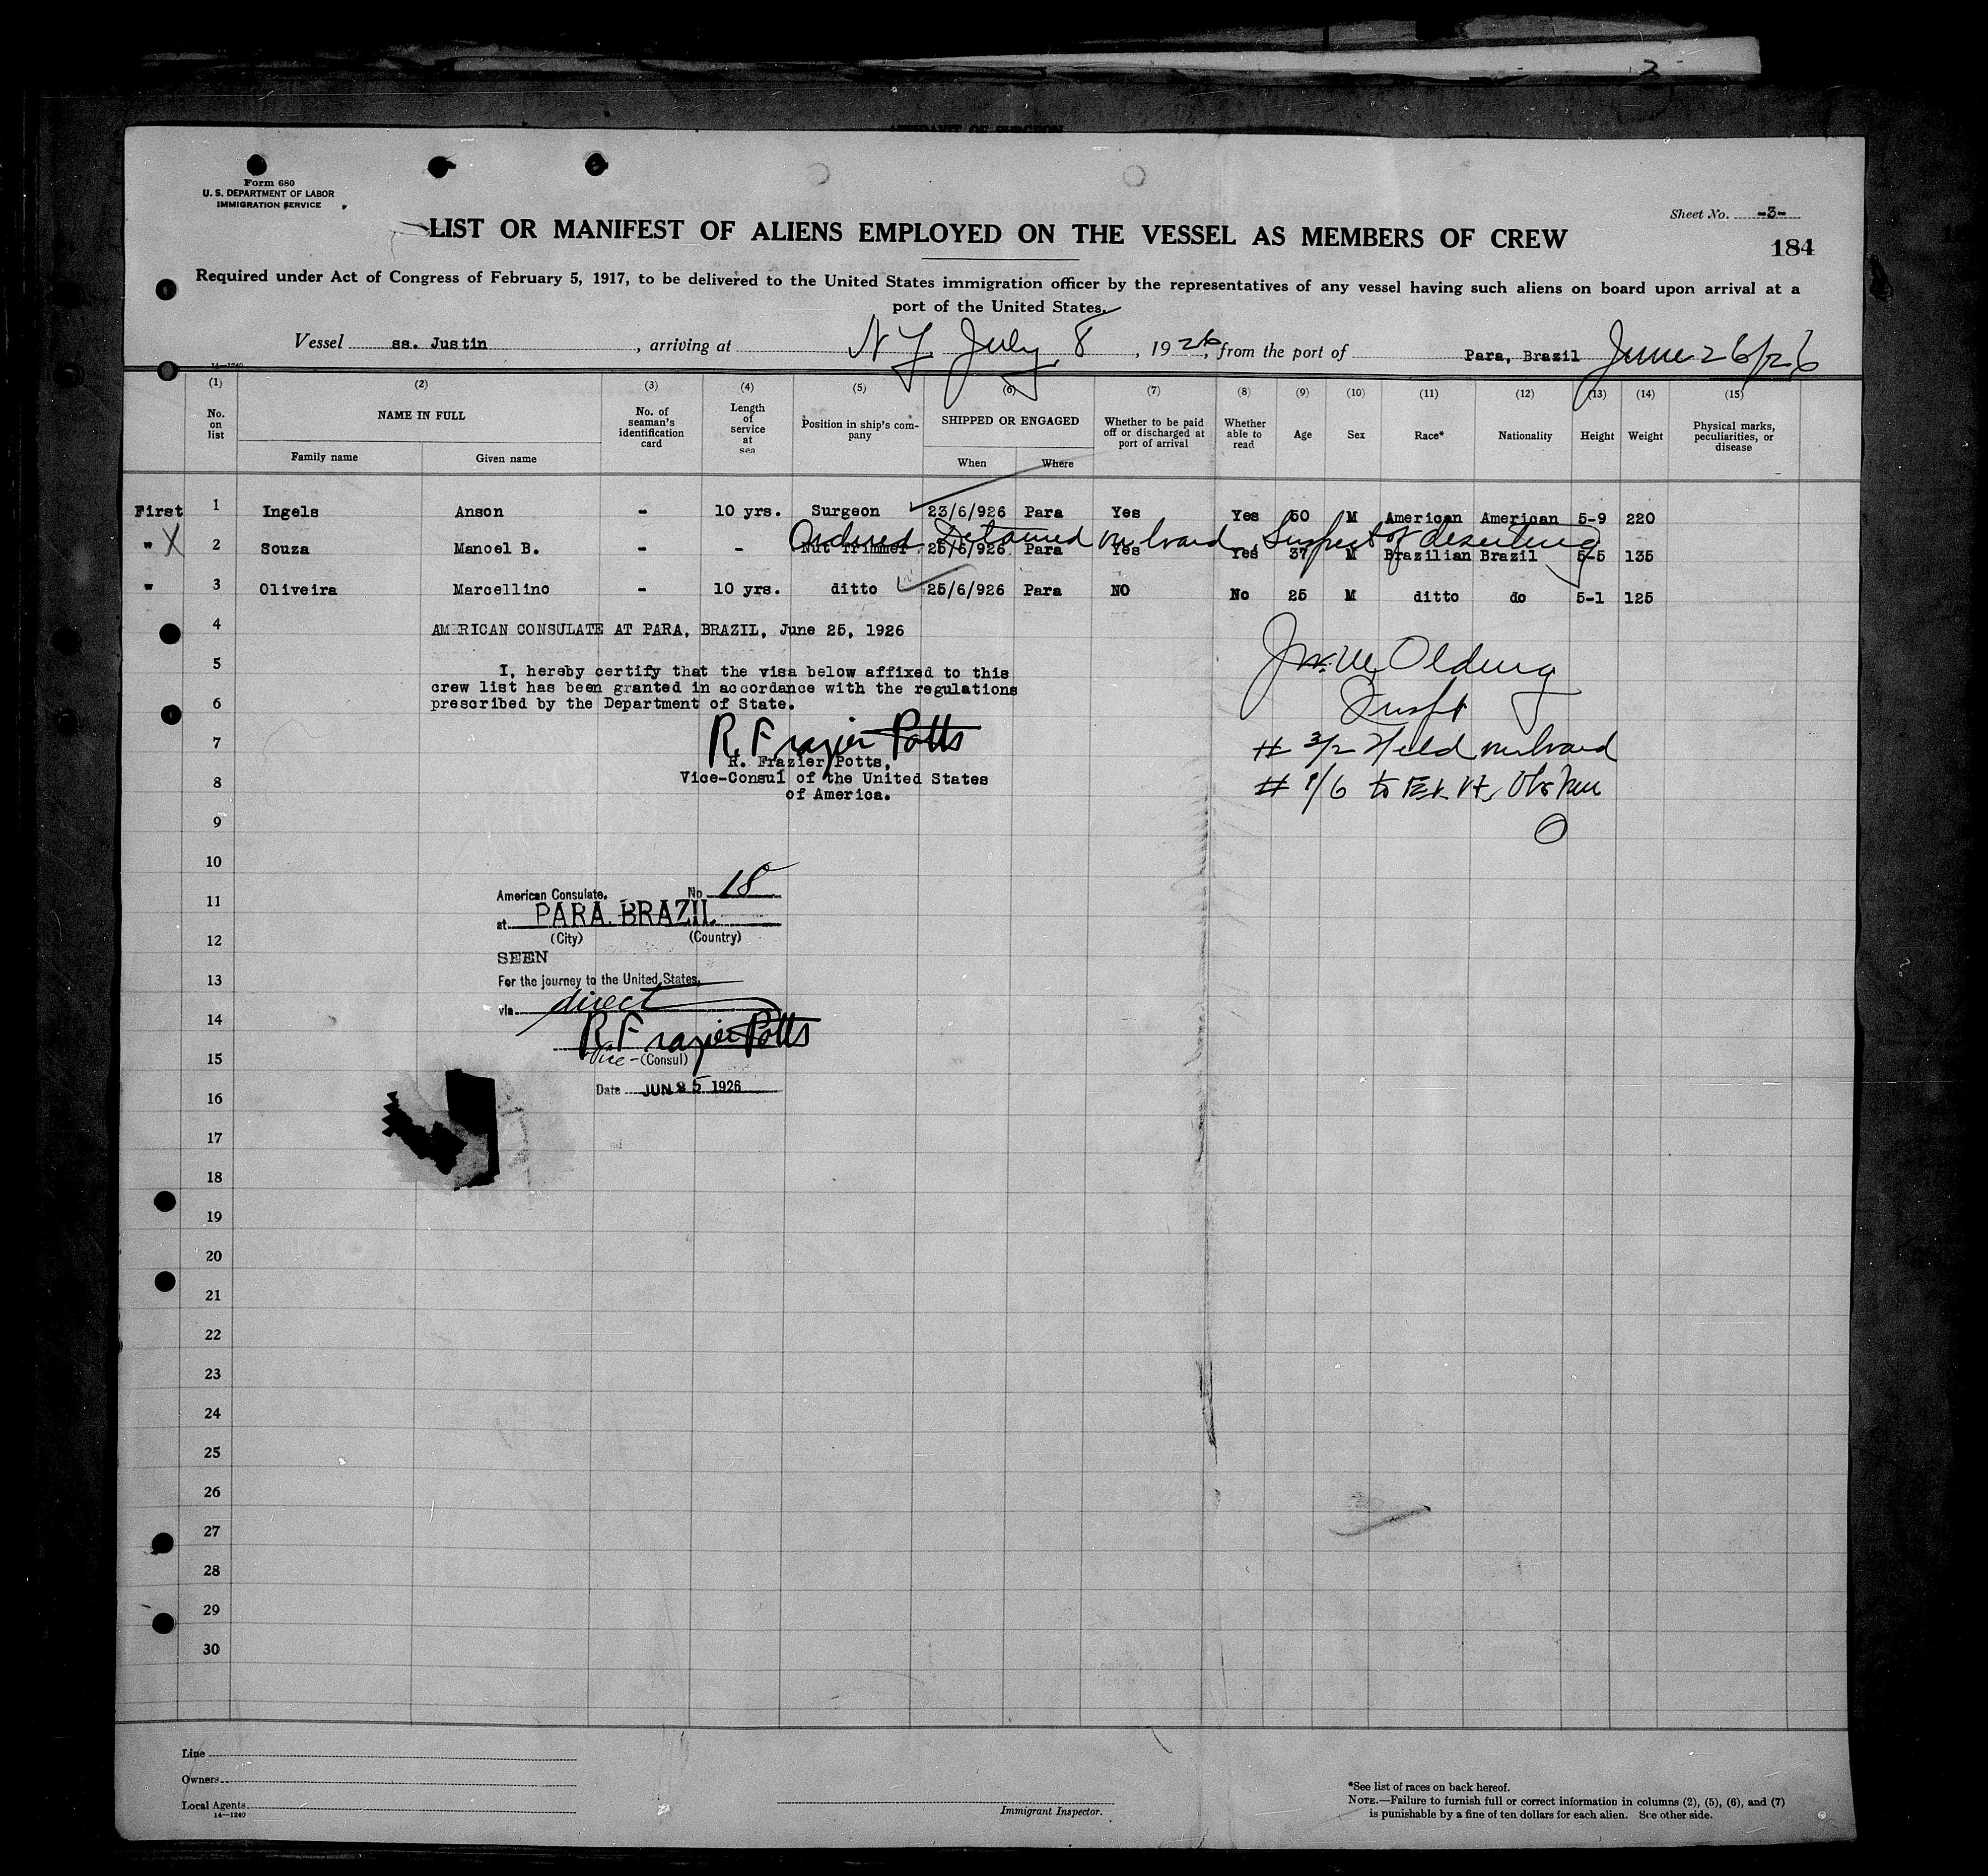 3
AFFIDAVIT OF SURGEON
Form 680
U. S. DEPARTMENT OF LABOR
IMMIGRATION SERVICE
Sheet No. -3-
LIST OR MANIFEST OF ALIENS EMPLOYED ON THE VESSEL AS MEMBERS OF CREW
184
Required under Act of Congress of February 5, 1917, to be delivered to the United States immigration officer by the representatives of any vessel having such aliens on board upon arrival at a
port of the United States.
Vessel ss. Justin, arriving at N Y July 8, 1926, from the port of Para, Brazil June 26/26
14—1240
(1) (2) (3) (4) (5) (6) (7) (8) (9) (10) (11) (12) (13) (14) (15)
No. on list NAME IN FULL Family name Given name No. of seaman's identification card Length of service at sea Position in ship's company SHIPPED OR ENGAGED When Where Whether to be paid off or discharged at port of arrival Whether able to read Age Sex Race* Nationality Height Weight Physical marks, peculiarities, or disease
First 1 Ingels Anson - 10 yrs. Surgeon 23/6/926 Para Yes Yes 50 M American American 5-9 220
Ordered Detained on board Suspect of deserting
" X 2 Souza Manoel B. - - Nut Trimmer 25/6/926 Para Yes Yes 37 M Brazilian Brazil 5-5 135
" 3 Oliveira Marcellino - 10 yrs. ditto 25/6/926 Para NO No 25 M ditto do 5-1 125
4 AMERICAN CONSULATE AT PARA, BRAZIL, June 25, 1926
5 I, hereby certify that the visa below affixed to this
crew list has been granted in accordance with the regulations
6 prescribed by the Department of State.
Inspt
7 R. Frazier Potts
# 3/2 Held on board
R. Frazier Potts,
8 Vice-Consul of the United States
of America.
# 1/6 to
9
10
American Consulate. No 18
11 at PARA. BRAZIL.
12 (City) (Country)
SEEN
13 For the journey to the United States,
via direct
14 R. Frazier Potts
15 Vice-(Consul)
Date JUN 25 1926
16
17
18
19
20
21
22
23
24
25
26
27
28
29
30
Line
Owners
Local Agents
14—1240
Immigrant Inspector.
*See list of races on back hereof.
NOTE.—Failure to furnish full or correct information in columns (2), (5), (6), and (7)
is punishable by a fine of ten dollars for each alien. See other side.